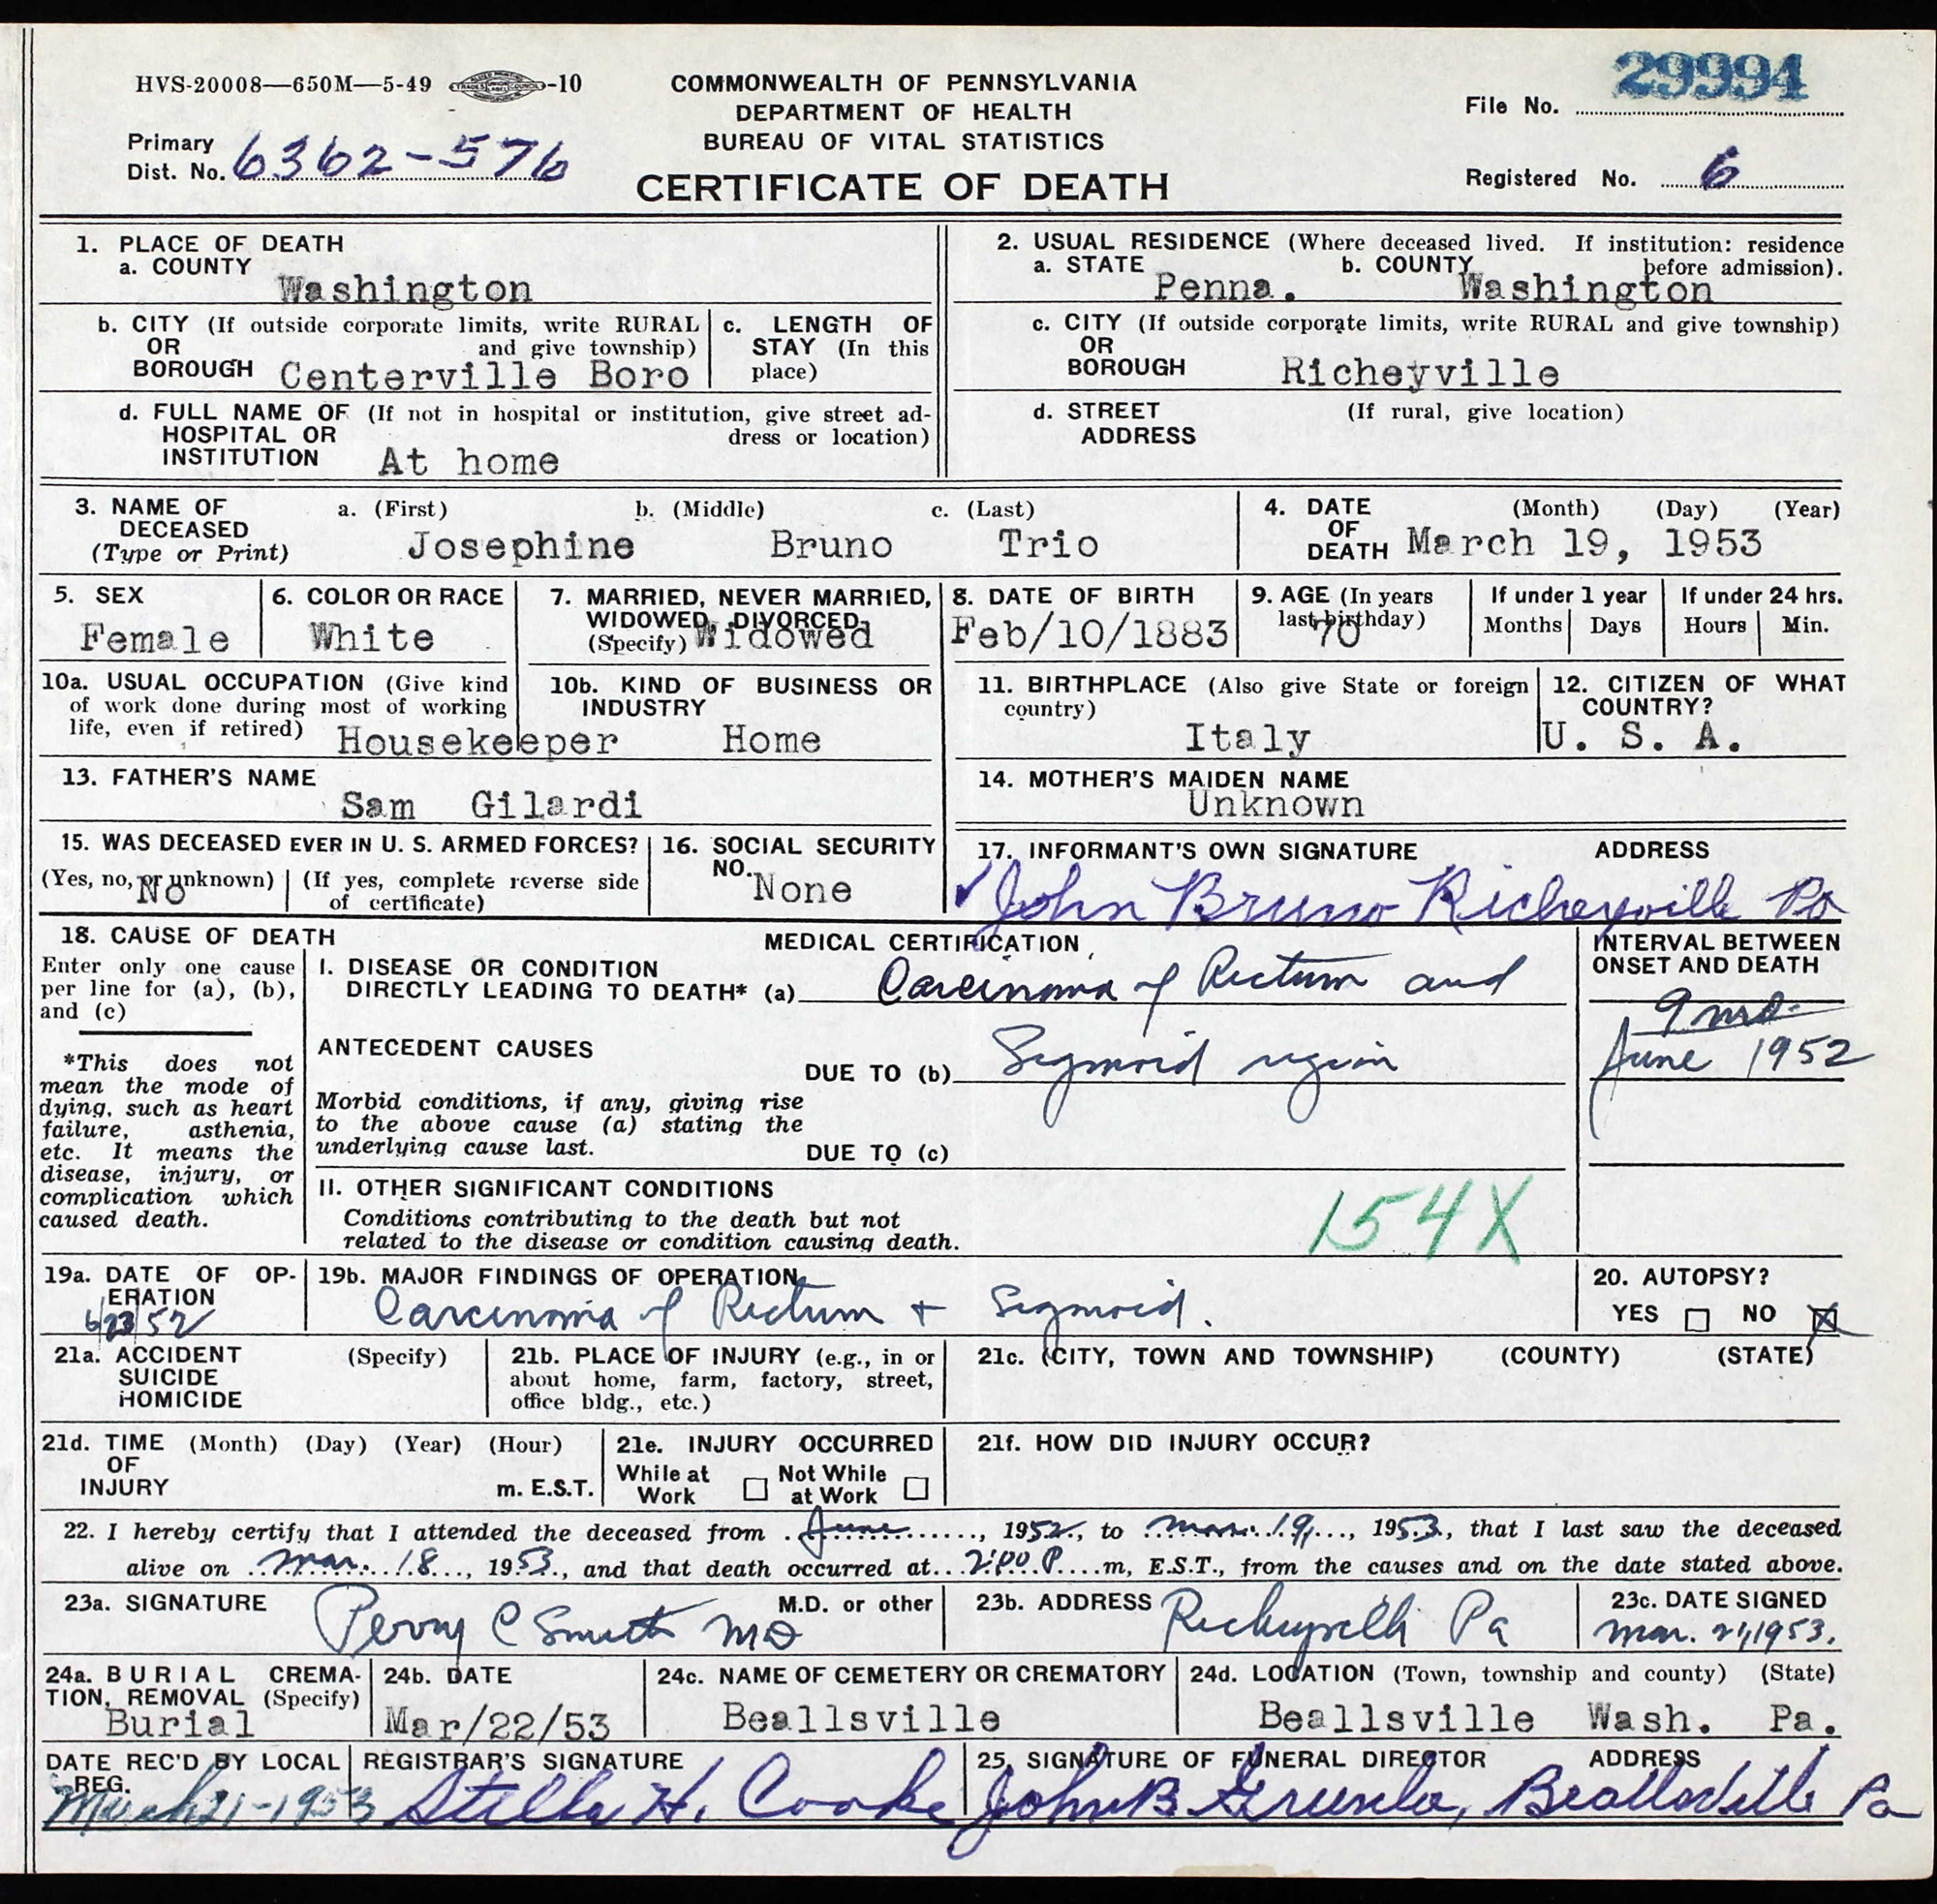 HVS-20008—650M—5-49 -10
COMMONWEALTH OF PENNSYLVANIA
DEPARTMENT OF HEALTH
BUREAU OF VITAL STATISTICS
CERTIFICATE OF DEATH
Primary
Dist. No. 6362-576
File No. 29994
Registered No. 6
1. PLACE OF DEATH
a. COUNTY
Washington
b. CITY (If outside corporate limits, write RURAL
OR and give township)
BOROUGH Centerville Boro
c. LENGTH OF
STAY (In this
place)
d. FULL NAME OF (If not in hospital or institution, give street ad-
HOSPITAL OR dress or location)
INSTITUTION At home
2. USUAL RESIDENCE (Where deceased lived. If institution: residence
a. STATE b. COUNTY before admission).
Penna. Washington
c. CITY (If outside corporate limits, write RURAL and give township)
OR
BOROUGH Richeyville
d. STREET (If rural, give location)
ADDRESS
3. NAME OF a. (First) b. (Middle) c. (Last)
DECEASED
(Type or Print) Josephine Bruno Trio
4. DATE (Month) (Day) (Year)
OF
DEATH March 19, 1953
5. SEX
Female
6. COLOR OR RACE
White
7. MARRIED, NEVER MARRIED,
WIDOWED, DIVORCED
(Specify) Widowed
8. DATE OF BIRTH
Feb/10/1883
9. AGE (In years
last birthday)
70
If under 1 year
Months Days
If under 24 hrs.
Hours Min.
10a. USUAL OCCUPATION (Give kind
of work done during most of working
life, even if retired) Housekeeper
10b. KIND OF BUSINESS OR
INDUSTRY
Home
11. BIRTHPLACE (Also give State or foreign
country)
Italy
12. CITIZEN OF WHAT
COUNTRY?
U. S. A.
13. FATHER'S NAME
Sam Gilardi
14. MOTHER'S MAIDEN NAME
Unknown
15. WAS DECEASED EVER IN U. S. ARMED FORCES?
(Yes, no, or unknown) (If yes, complete reverse side
No of certificate)
16. SOCIAL SECURITY
NO.
None
17. INFORMANT'S OWN SIGNATURE ADDRESS
John Bruno Richeyville Pa
18. CAUSE OF DEATH
Enter only one cause
per line for (a), (b),
and (c)
*This does not
mean the mode of
dying, such as heart
failure, asthenia,
etc. It means the
disease, injury, or
complication which
caused death.
MEDICAL CERTIFICATION
I. DISEASE OR CONDITION
DIRECTLY LEADING TO DEATH* (a) Carcinoma of Rectum and
ANTECEDENT CAUSES
DUE TO (b) Sigmoid region
Morbid conditions, if any, giving rise
to the above cause (a) stating the
underlying cause last.
DUE TO (c)
II. OTHER SIGNIFICANT CONDITIONS
Conditions contributing to the death but not
related to the disease or condition causing death.
154X
INTERVAL BETWEEN
ONSET AND DEATH
9 mo.
June 1952
19a. DATE OF OP-
ERATION
6/23/52
19b. MAJOR FINDINGS OF OPERATION
Carcinoma of Rectum + Sigmoid.
20. AUTOPSY?
YES NO X
21a. ACCIDENT (Specify)
SUICIDE
HOMICIDE
21b. PLACE OF INJURY (e.g., in or
about home, farm, factory, street,
office bldg., etc.)
21c. (CITY, TOWN AND TOWNSHIP) (COUNTY) (STATE)
21d. TIME (Month) (Day) (Year) (Hour)
OF
INJURY m. E.S.T.
21e. INJURY OCCURRED
While at Not While
Work at Work
21f. HOW DID INJURY OCCUR?
22. I hereby certify that I attended the deceased from June, 1952, to Mar. 19, 1953, that I last saw the deceased
alive on Mar. 18, 1953, and that death occurred at 2:00 P.m, E.S.T., from the causes and on the date stated above.
23a. SIGNATURE M.D. or other
Perry C Smith MD
23b. ADDRESS
Richeyville Pa
23c. DATE SIGNED
Mar. 21, 1953.
24a. BURIAL CREMA-
TION, REMOVAL (Specify)
Burial
24b. DATE
Mar/22/53
24c. NAME OF CEMETERY OR CREMATORY
Beallsville
24d. LOCATION (Town, township and county) (State)
Beallsville Wash. Pa.
DATE REC'D BY LOCAL
REG.
March 21-1953
REGISTRAR'S SIGNATURE
Stella H. Cooke
25. SIGNATURE OF FUNERAL DIRECTOR ADDRESS
John B Beallsville Pa